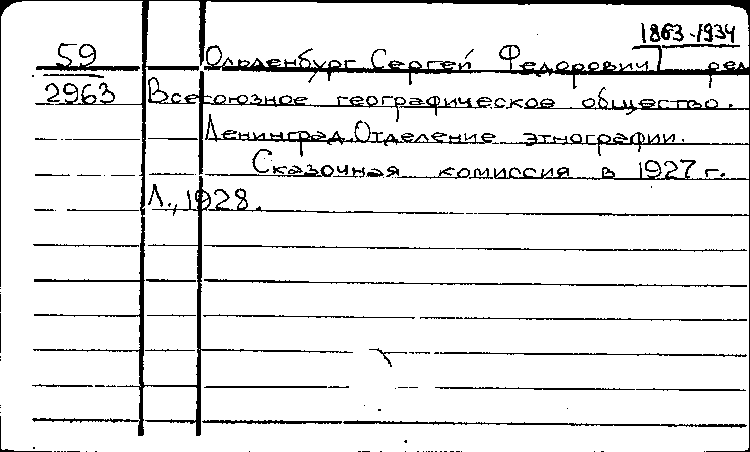 1863-1934
59 Ольденбург Сергей Федорович ред
2963 Всесоюзное географическое общество.
Ленинград. Отделение этнографии.
Сказочная комиссия в 1927 г.
Л., 1928.